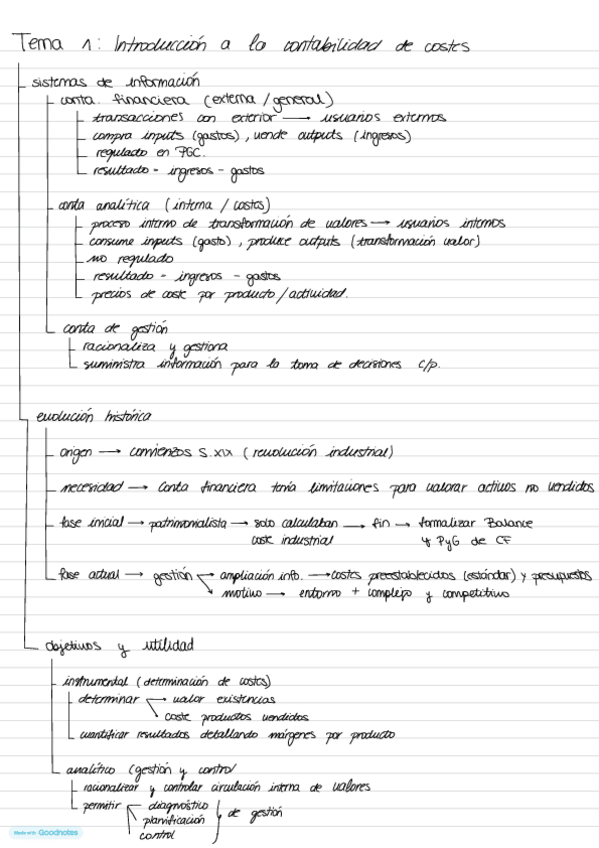 Tema 1: Introducción a la contabilidad de costes
sistemas de información
conta. financiera (externa / general)
transacciones con exterior → usuarios externos
compra inputs (gastos), vende outputs (ingresos)
regulado en PGC.
resultado = ingresos - gastos
conta analítica (interna / costes)
proceso interno de transformación de valores → usuarios internos
consume inputs (gasto), produce outputs (transformación valor)
no regulado
resultado = ingresos - gastos
precios de coste por producto / actividad.
conta de gestión
racionaliza y gestiona
suministra información para la toma de decisiones c/p.
evolución histórica
origen → comienzos S.XIX (revolución industrial)
necesidad → conta financiera tenía limitaciones para valorar activos no vendidos
fase inicial → patrimonialista → solo calculaban → fin → formalizar Balance
coste industrial y PyG de CF
fase actual → gestión → ampliación info. → costes preestablecidos (estándar) y presupuestos
motivo → entorno + complejo y competitivo
objetivos y utilidad
instrumental (determinación de costes)
determinar → valor existencias
coste productos vendidos
cuantificar resultados detallando márgenes por producto
analítico (gestión y control
racionalizar y controlar circulación interna de valores
permitir diagnóstico
planificación de gestión
control
Made with Goodnotes